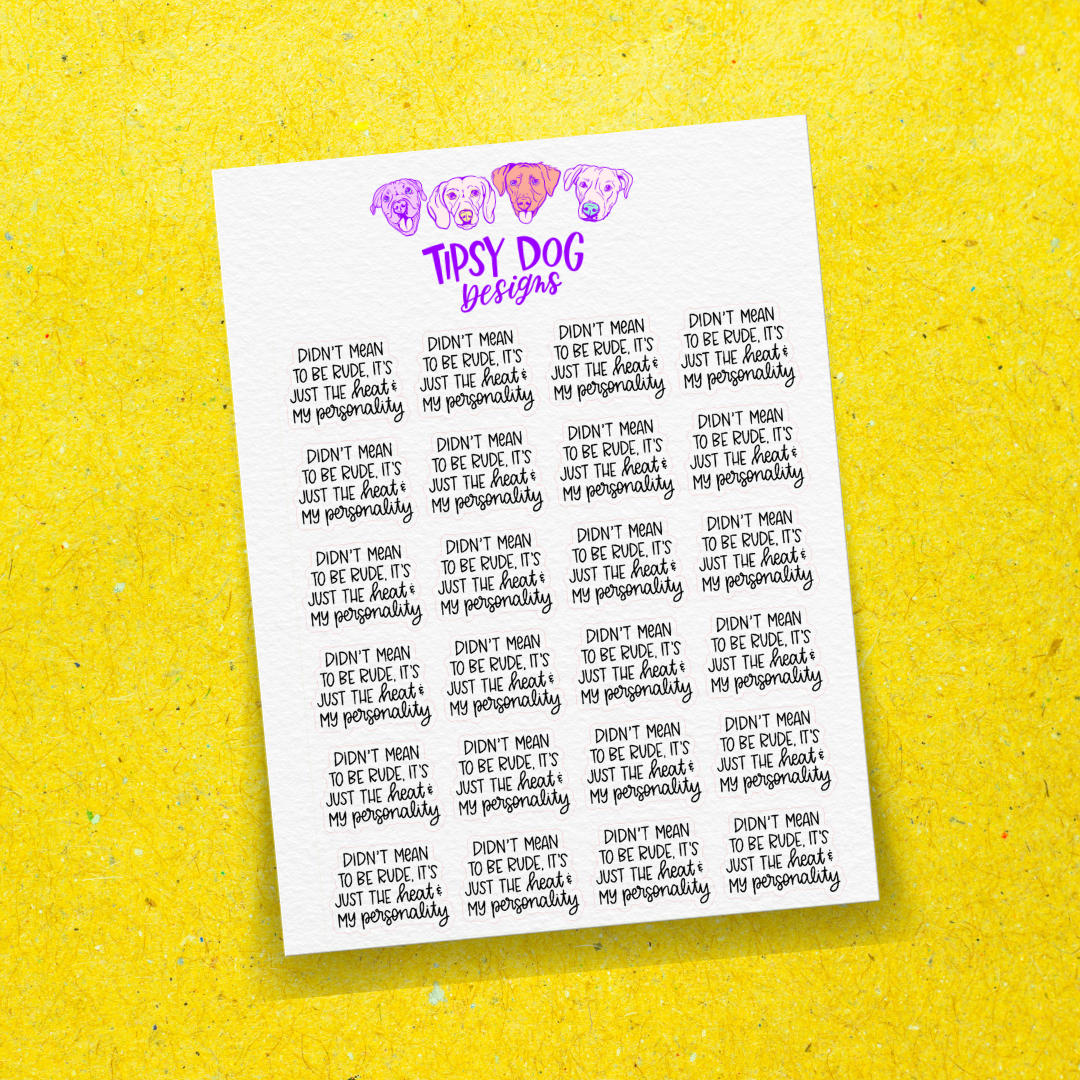 TIPSY DOG
Designs
DIDN'T MEAN
TO BE RUDE, IT'S
JUST THE heat &
MY personality
DIDN'T MEAN
TO BE RUDE, IT'S
JUST THE heat &
MY personality
DIDN'T MEAN
TO BE RUDE, IT'S
JUST THE heat &
MY personality
DIDN'T MEAN
TO BE RUDE, IT'S
JUST THE heat &
MY personality
DIDN'T MEAN
TO BE RUDE, IT'S
JUST THE heat &
MY personality
DIDN'T MEAN
TO BE RUDE, IT'S
JUST THE heat &
MY personality
DIDN'T MEAN
TO BE RUDE, IT'S
JUST THE heat &
MY personality
DIDN'T MEAN
TO BE RUDE, IT'S
JUST THE heat &
MY personality
DIDN'T MEAN
TO BE RUDE, IT'S
JUST THE heat &
MY personality
DIDN'T MEAN
TO BE RUDE, IT'S
JUST THE heat &
MY personality
DIDN'T MEAN
TO BE RUDE, IT'S
JUST THE heat &
MY personality
DIDN'T MEAN
TO BE RUDE, IT'S
JUST THE heat &
MY personality
DIDN'T MEAN
TO BE RUDE, IT'S
JUST THE heat &
MY personality
DIDN'T MEAN
TO BE RUDE, IT'S
JUST THE heat &
MY personality
DIDN'T MEAN
TO BE RUDE, IT'S
JUST THE heat &
MY personality
DIDN'T MEAN
TO BE RUDE, IT'S
JUST THE heat &
MY personality
DIDN'T MEAN
TO BE RUDE, IT'S
JUST THE heat &
MY personality
DIDN'T MEAN
TO BE RUDE, IT'S
JUST THE heat &
MY personality
DIDN'T MEAN
TO BE RUDE, IT'S
JUST THE heat &
MY personality
DIDN'T MEAN
TO BE RUDE, IT'S
JUST THE heat &
MY personality
DIDN'T MEAN
TO BE RUDE, IT'S
JUST THE heat &
MY personality
DIDN'T MEAN
TO BE RUDE, IT'S
JUST THE heat &
MY personality
DIDN'T MEAN
TO BE RUDE, IT'S
JUST THE heat &
MY personality
DIDN'T MEAN
TO BE RUDE, IT'S
JUST THE heat &
MY personality